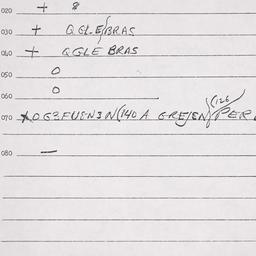 020 + 8
030 + QGLE/BRAS
040 + QGLE BRAS
050 0
060 0
070 (140 A (126 PER
080 —